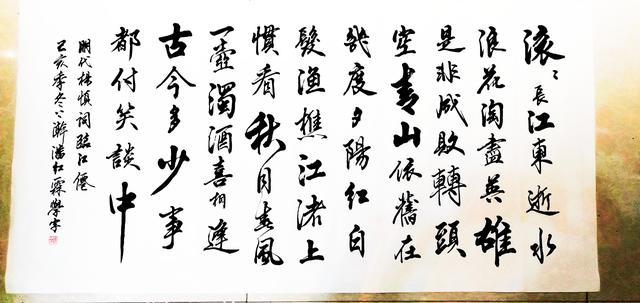 滚〻長江東逝水
浪花淘盡英雄
是非成敗轉頭
空青山依舊在
幾度夕陽紅白
髮漁樵江渚上
慣看秋月春風
一壺濁酒喜相逢
古今多少事
都付笑談中
明代楊慎詞臨江僊
己亥季冬下澣潘紅霖學